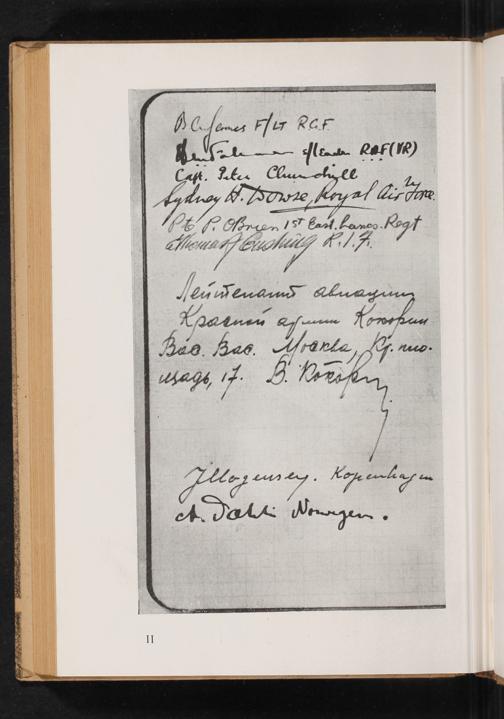 B A James F/LT R.A.F.
S/Leader RAF (VR)
Capt. Peter Churchill
Sydney H. Dowse, Royal Air Force.
Pte. P. O'Brien 1st East. Lancs. Regt
Thomas J Cushing R.I.F.
Лейтенант авиации
Красной армии Кокорин
Вас. Вас. Москва, Кр. пло-
щадь, 17. В. Кокорин
J Mogensen. Kopenhagen
Norwegen.
II